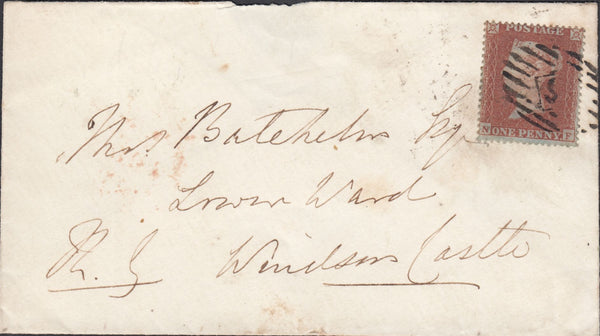 POSTAGE
ONE PENNY
N F
Thos Batchelor Esq
Lower Ward
Windsor Castle